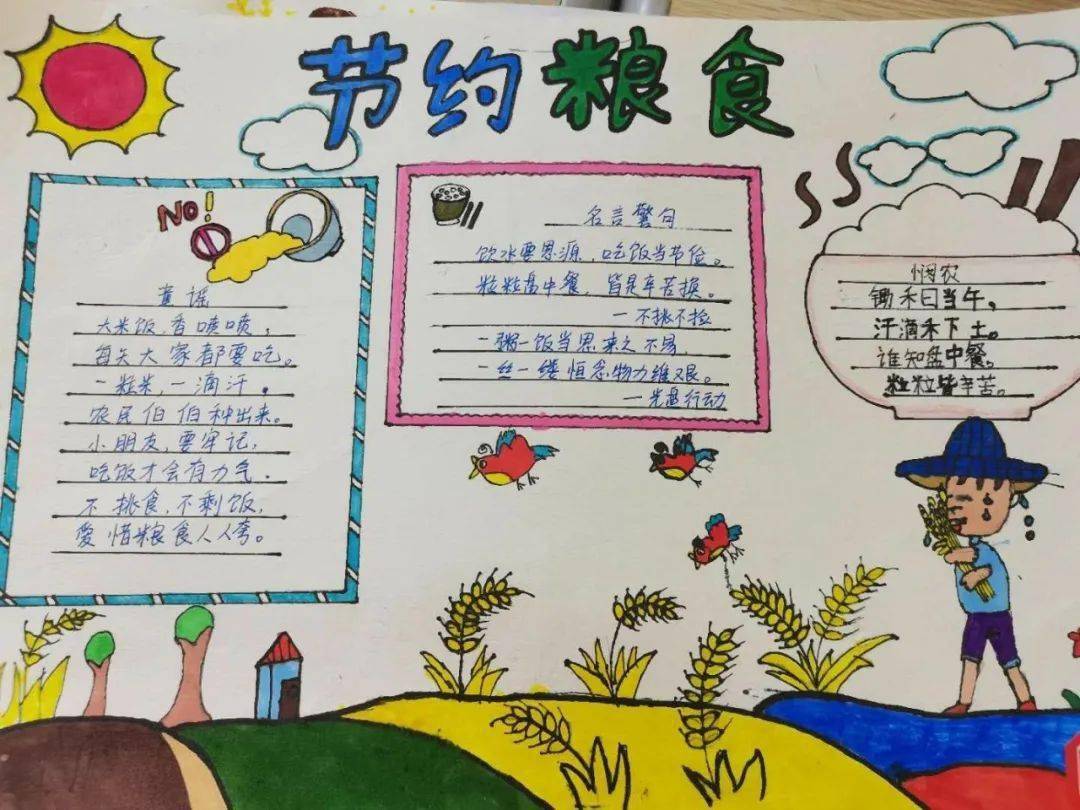 节约粮食
No!
童谣
大米饭,香喷喷,
每天大家都要吃。
一粒米,一滴汗.
农民伯伯种出来。
小朋友,要牢记,
吃饭才会有力气.
不挑食,不剩饭,
爱惜粮食人人夸。
名言警句
饮水要思源,吃饭当节俭。
粒粒盘中餐,皆是辛苦换。
—不挑不捡
一粥一饭当思来之不易,
一丝一缕恒念物力维艰。
—光盘行动
悯农
锄禾日当午,
汗滴禾下土。
谁知盘中餐,
粒粒皆辛苦。